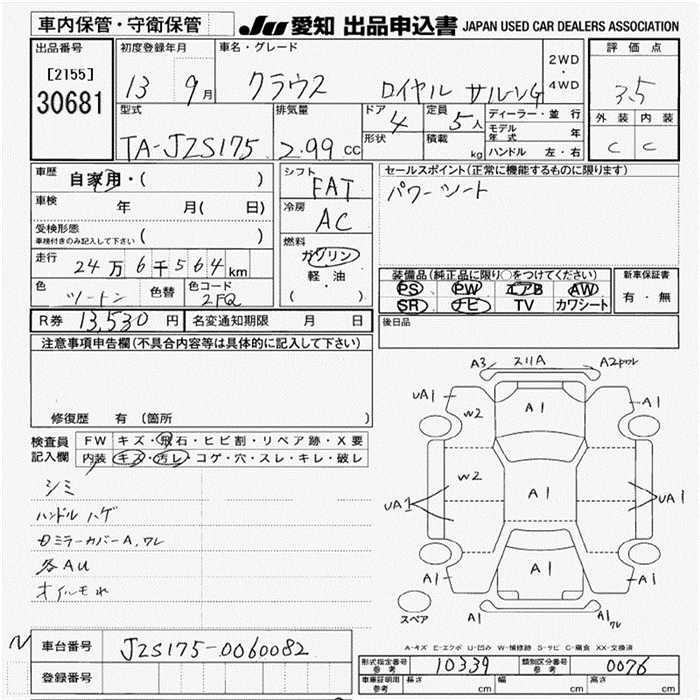 車内保管・守衛保管
JU 愛知 出品申込書 JAPAN USED CAR DEALERS ASSOCIATION
出品番号
[2155]
30681
初度登録年月
13 9月
車名・グレード
クラウン ロイヤル サルーンG
2WD
・
4WD
評価点
3.5
外装 内装
C C
型式
TA-JZS175
排気量
2.99 cc
ドア
4
形状
定員
5人
積載
kg
ディーラー・並行
モデル年式 年
ハンドル 左・右
車歴
自家用・( )
車検 年 月( 日)
受検形態
車検付きのみ記入して下さい ( )
走行
24万6千564km
色
ツートン
色替
色コード
2FQ
シフト
FAT
冷房
AC
燃料
ガソリン
軽・油
( )
セールスポイント(正常に機能するものに限ります)
パワーシート
装備品(純正品に限り○をつけてください)
PS PW エアB AW
SR ナビ TV カワシート
新車保証書
有・無
R券 13,530 円 名変通知期限 月 日
後日品
注意事項申告欄(不具合内容等は具体的に記入して下さい)
修復歴 有 (箇所 )
検査員
記入欄
FW キズ・飛石・ヒビ割・リペア跡・X要
内装 キズ・汚レ・コゲ・穴・スレ・キレ・破レ
シミ
ハンドルハゲ
ミラーカバーA,ワレ
各AU
オイルモレ
A3 スリA A2
UA1 W2 A1 A1
UA1 W2 A1 UA1
A1 A1 A1
A1 A1ワレ
スペア
A-キズ E-エクボ U-凹み W-補修跡 S-サビ C-腐食 XX-交換済
N
車台番号 JZS175-0060082
登録番号
形式指定番号
参考
10339
類別区分番号
参考
0076
車庫証明用
参考
長さ cm 幅 cm 高さ cm